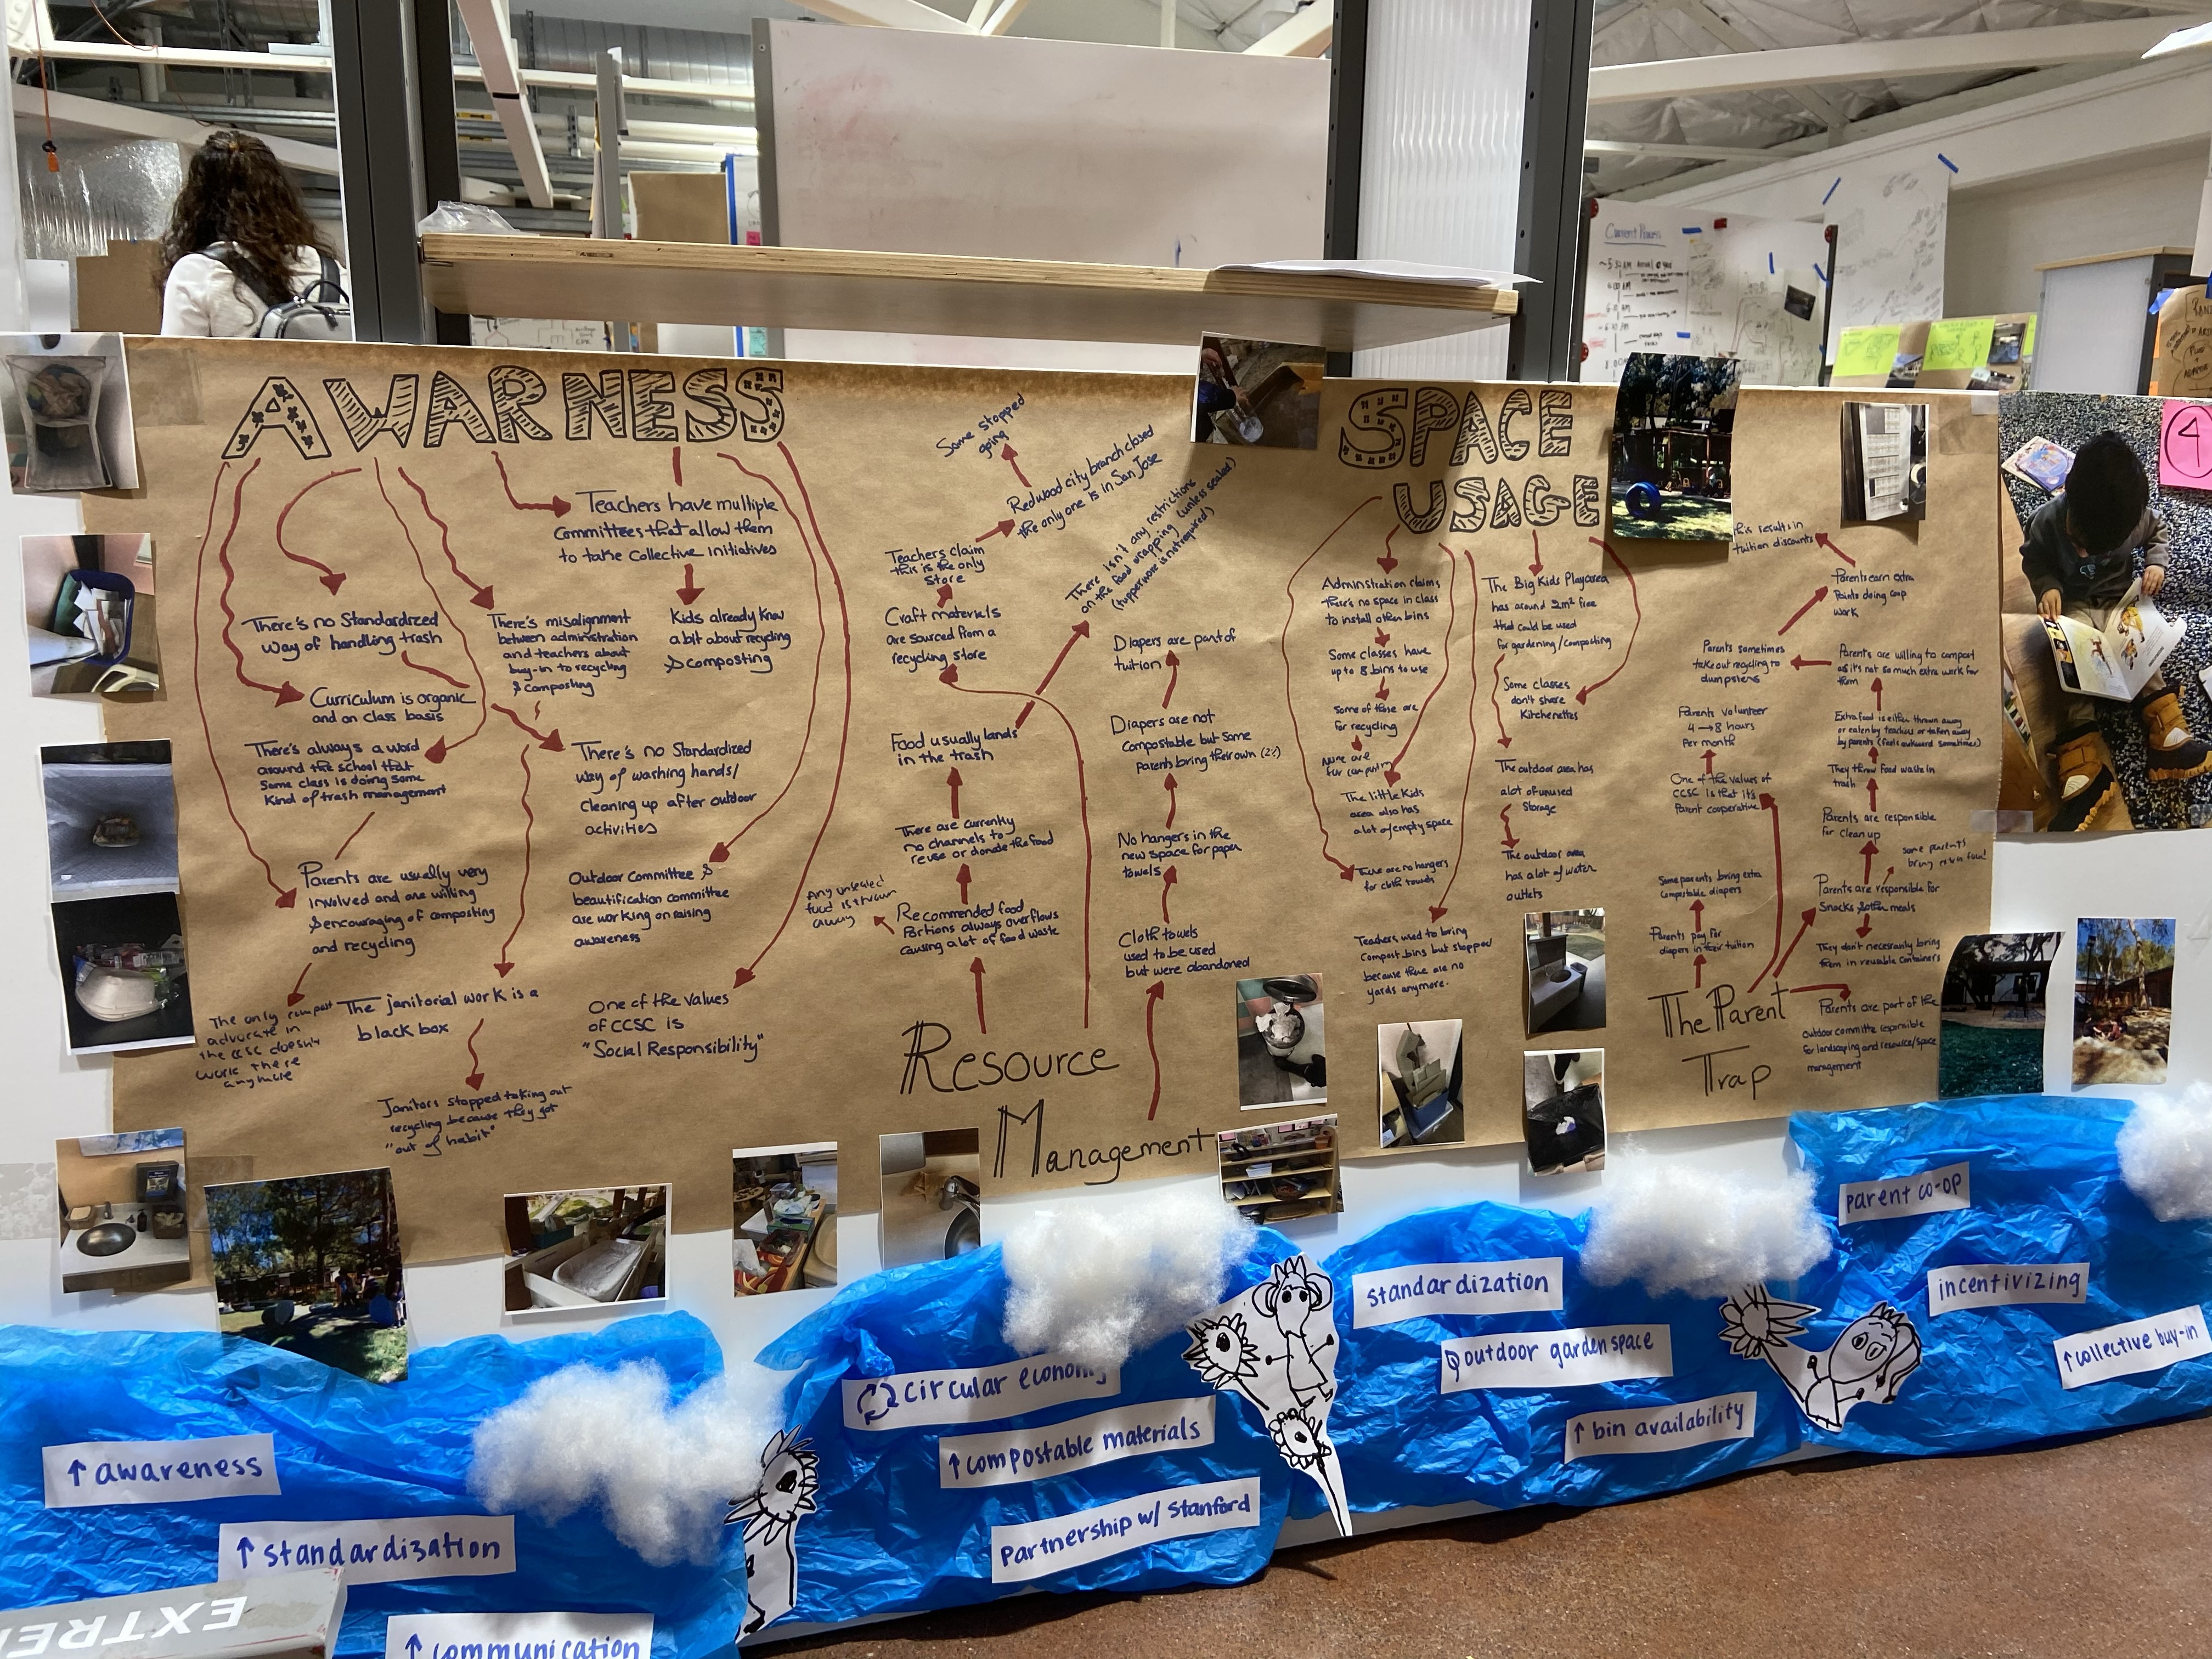 AWARNESS
Teachers have multiple
Committees that allow them
to take Collective Initiatives
There's no Standardized
way of handling trash
There's misalignment
between administration
and teachers about
buy-in to recycling
& composting
Kids already know
a bit about recycling
& composting
Curriculum is organic
and on class basis
There's always a word
around the school that
Some class is doing some
kind of trash management
There's no Standardized
way of washing hands/
cleaning up after outdoor
activities
Parents are usually very
involved and are willing
& encouraging of composting
and recycling
Outdoor Committee &
beautification committee
are working on raising
awareness
The only compost
advocate in
the CCSC doesn't
work there
anymore
The janitorial work is a
black box
One of the values
of CCSC is
"Social Responsibility"
Janitors stopped taking out
recycling because they got
"out of habit"
Some stopped
going
Redwood city branch closed
the only one is in San Jose
Teachers claim
this is the only
Store
There isn't any restrictions
on the food wrapping (unless sealed)
(tupperware is not required)
Craft materials
are sourced from a
recycling store
Diapers are part of
tuition
Food usually lands
in the trash
Diapers are not
compostable but some
Parents bring their own (2%)
There are currently
no channels to
reuse or donate the food
No hangers in the
new space for paper
towels
Any unsealed
food is thrown
away
Recommended food
Portions always overflows
causing a lot of food waste
Cloth towels
used to be used
but were abandoned
Resource
Management
SPACE
USAGE
Administration claims
there's no space in class
to install other bins
The Big Kids Playarea
has around 2m² free
that could be used
for gardening/composting
Some classes have
up to 8 bins to use
Some of those are
for recycling
none are
for compost
Some classes
don't share
Kitchenettes
The little Kids
area also has
a lot of empty space
The outdoor area has
a lot of unused
Storage
There are no hangers
for cloth towels
The outdoor area
has a lot of water
outlets
Teachers used to bring
Compost bins but stopped
because there are no
yards anymore.
This results in
tuition discounts
Parents earn extra
Points doing coop
work
Parents sometimes
take out recycling to
dumpsters
Parents are willing to compost
as it's not so much extra work for
them
Parents volunteer
4 → 8 hours
per month
Extra food is either thrown away
or eaten by teachers or taken away
by parents (feels awkward sometimes)
One of the values of
CCSC is that it's
Parent cooperative
They throw food waste in
trash
Parents are responsible
for clean up
some parents
bring
Some parents bring extra
Compostable diapers
Parents are responsible for
Snacks & other meals
Parents pay for
diapers in their tuition
They don't necessarily bring
them in reusable containers
The Parent
Trap
Parents are part of the
outdoor committe responsible
for landscaping and resource/space
management
4
Current Process
parent co-op
incentivizing
↑ collective buy-in
standardization
outdoor garden space
↑ bin availability
circular economy
↑ compostable materials
Partnership w/ Stanford
↑ awareness
↑ standardization
↑ communication
EXTRE